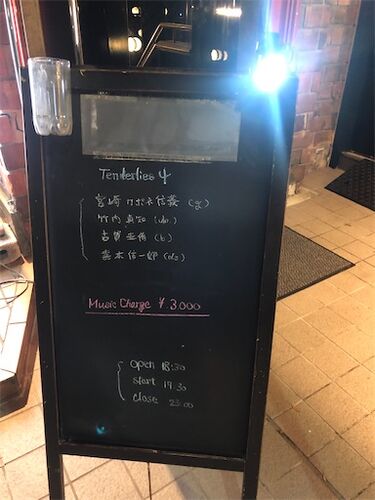 Tenderlies 4
宮崎 信義 (g)
竹内 真知 (vln.)
古賀 (b)
信一郎 (ds)
Music Charge ¥3.000
open 18:30
start 19.30
close 23:00